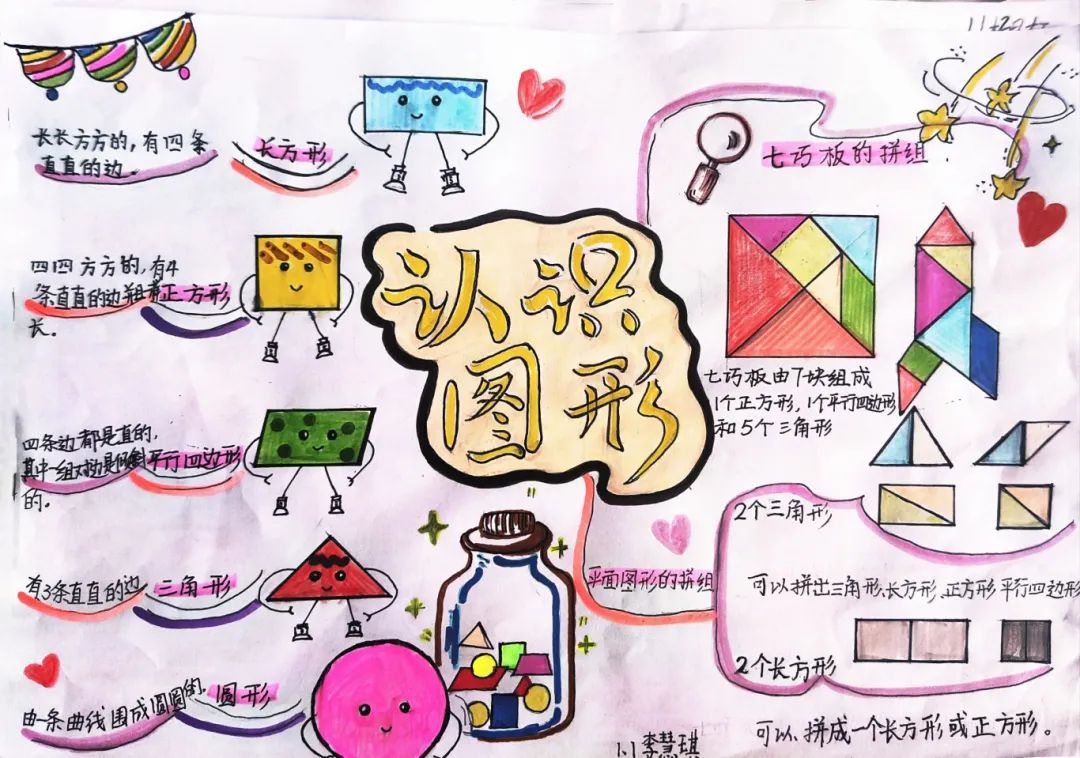 认识
图形
长长方方的,有四条
直直的边。
长方形
四四方方的,有4
条直直的边
正方形
长。
四条边都是直的,
其中一组对边是倾斜
的。
平行四边形
有3条直直的边
三角形
由一条曲线围成圆圆的.
圆形
七巧板的拼组
七巧板由7块组成
1个正方形,1个平行四边形
和5个三角形
平面图形的拼组
2个三角形
可以拼出三角形、长方形、正方形平行四边形
2个长方形
可以拼成一个长方形或正方形。
1.1李慧琪